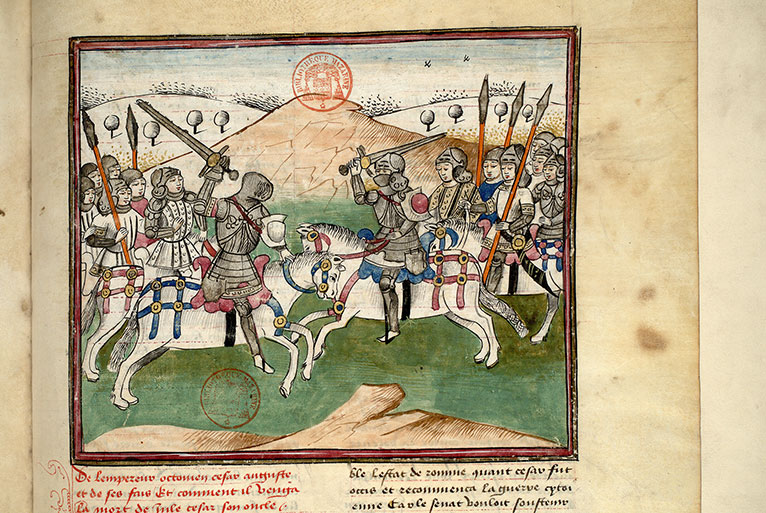 BIBLIOTHEQUE MAZARINE
De lempereur octouien cesar auguste
et de ses fais Et comment il venga
la mort de Jule cesar son oncle
ble lestat de romme quant cesar fut
occis et recommenca la guerre
enne Car le senat vouloit soustenir